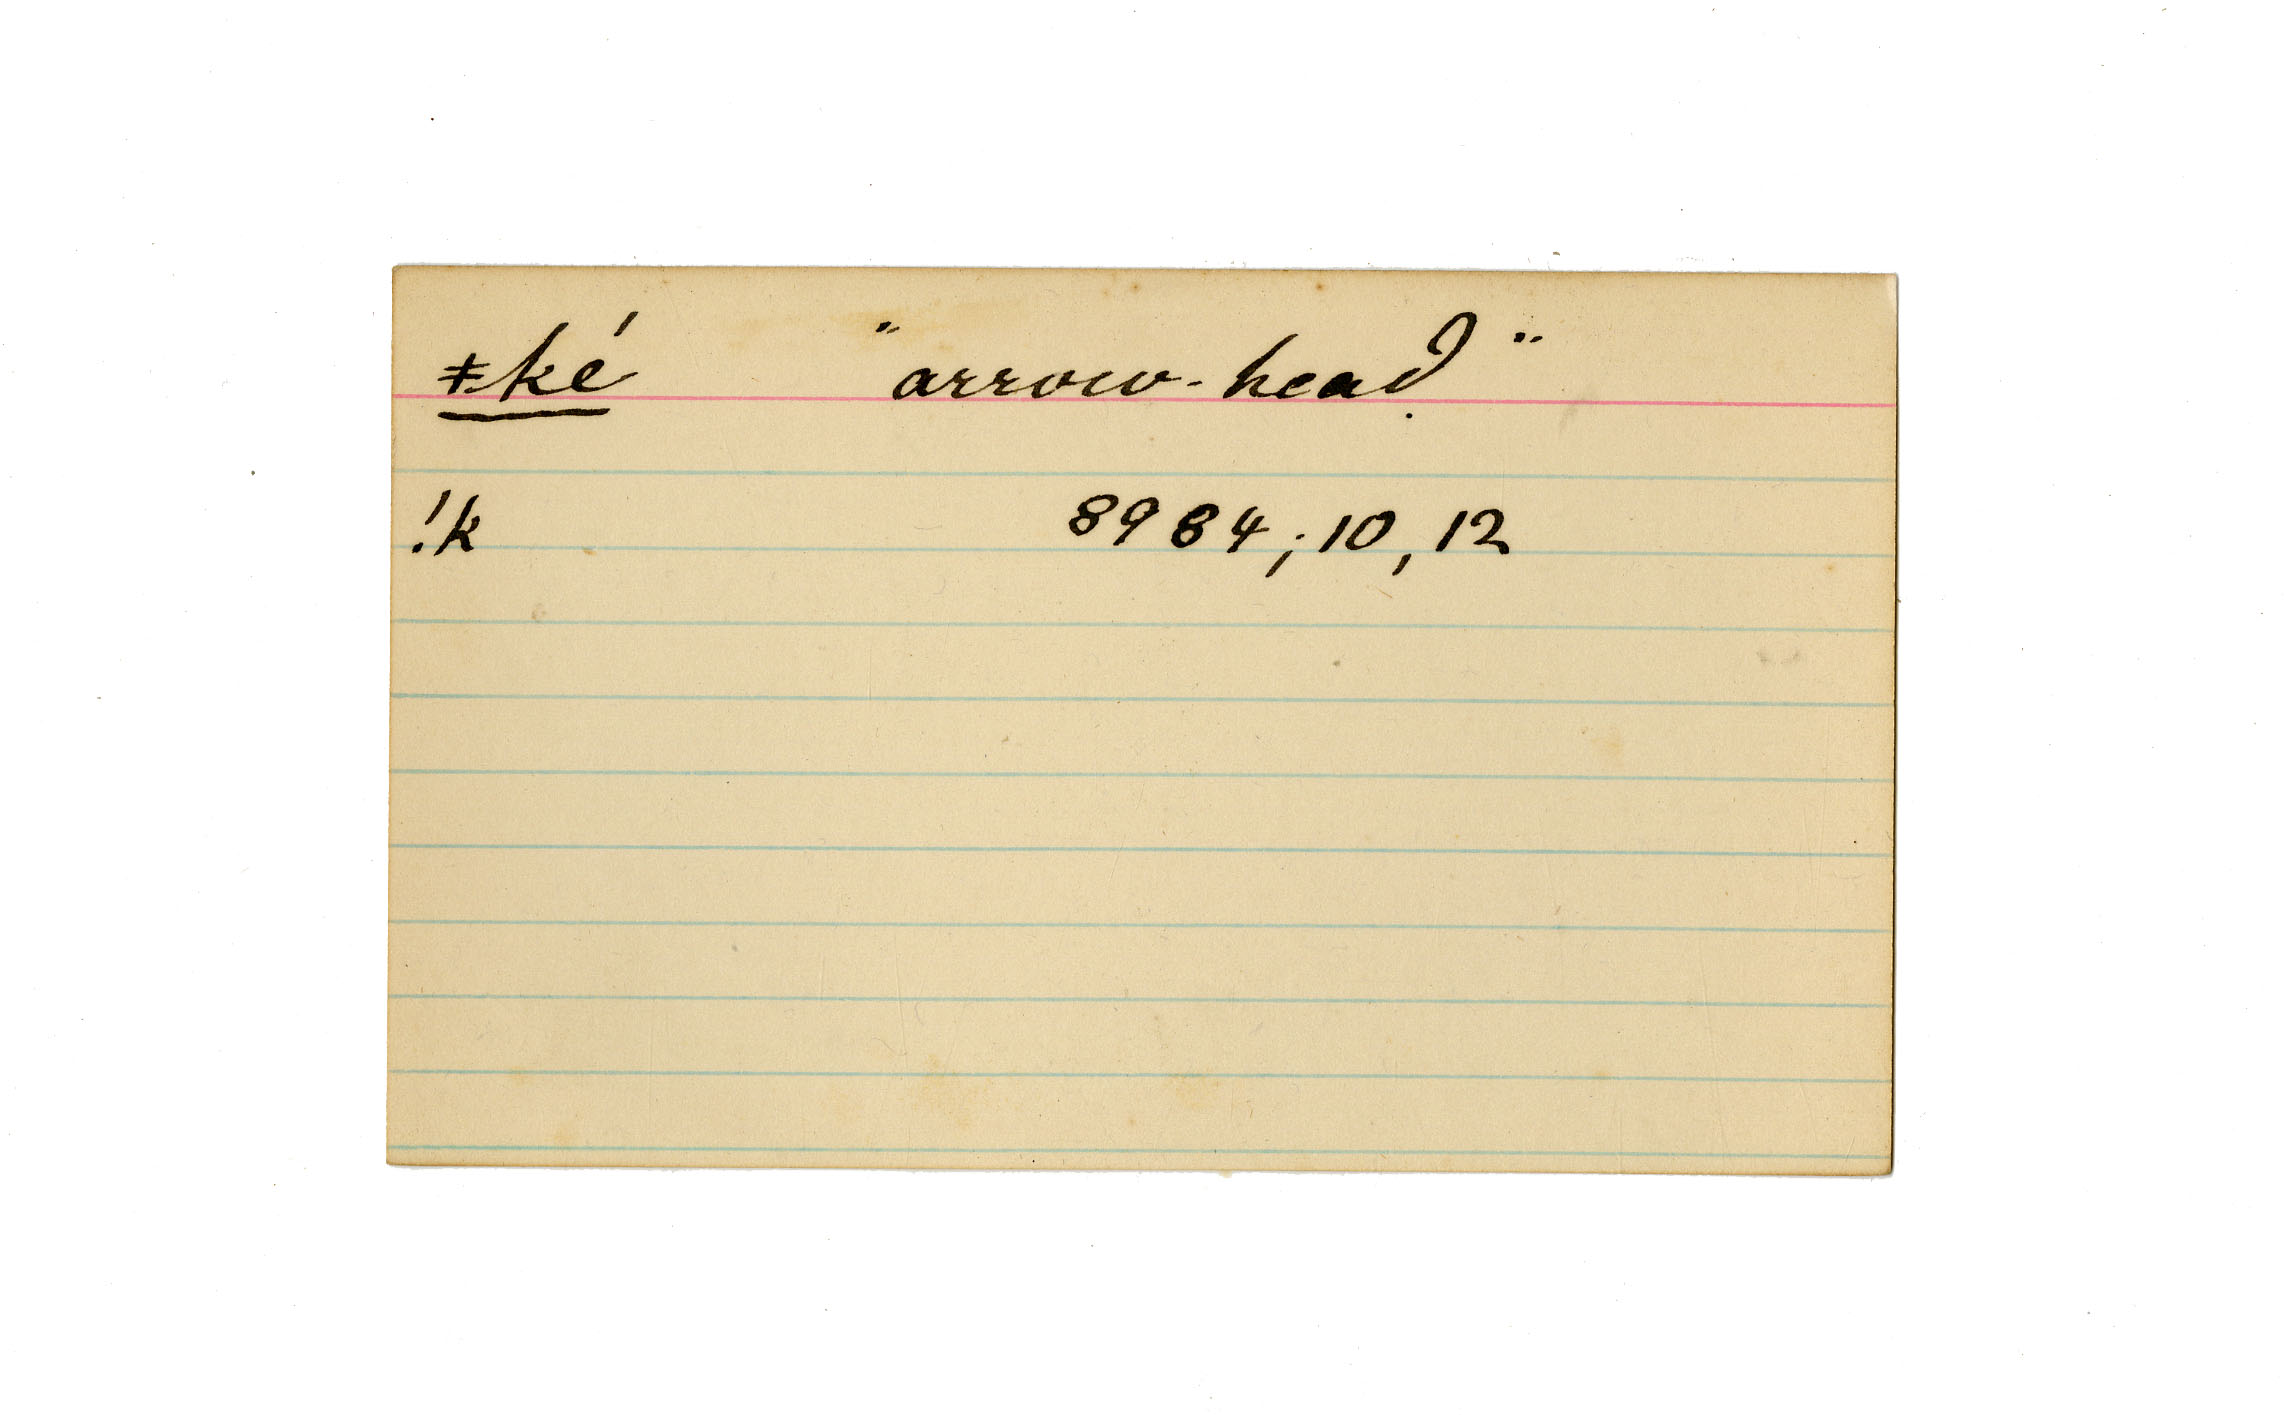 ǂké "arrow-head"
!k 8984; 10, 12